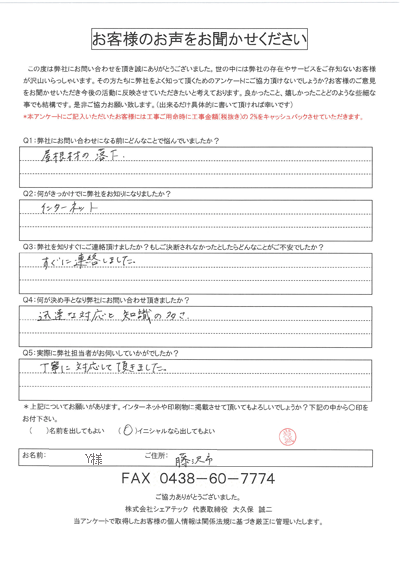 お客様のお声をお聞かせください
この度は弊社にお問い合わせを頂き誠にありがとうございました。世の中には弊社の存在やサービスをご存知ないお客様
が沢山いらっしゃいます。その方たちに弊社をよく知って頂くためのアンケートにご協力頂けないでしょうか?お客様のご意見
をお聞かせいただき今後の活動に反映させていただきたいと考えております。良かったこと、嬉しかったことどのような些細な
事でも結構です。是非ご協力お願い致します。(出来るだけ具体的に書いて頂ければ幸いです)
*本アンケートにご記入いただいたお客様には工事ご用命時に工事金額(税抜き)の2%をキャッシュバックさせていただきます。
Q1:弊社にお問い合わせになる前にどんなことで悩んでいましたか?
屋根材の落下.
Q2:何がきっかけでに弊社をお知りになりましたか?
インターネット
Q3:弊社を知りすぐにご連絡頂けましたか?もしご決断されなかったとしたらどんなことがご不安でしたか?
すぐに連絡しました。
Q4:何が決め手となり弊社にお問い合わせ頂きましたか?
迅速な対応と知識の多さ.
Q5:実際に弊社担当者がお伺いしていかがでしたか?
丁寧に対応して頂きました。
*上記についてお願いがあります。インターネットや印刷物に掲載させて頂いてもよろしいでしょうか?下記の中から〇印を
お付下さい。
( )名前を出してもよい (〇)イニシャルなら出してもよい
お名前: Y様 ご住所: 藤沢市
FAX 0438-60-7774
ご協力ありがとうございました。
株式会社シェアテック 代表取締役 大久保 誠二
当アンケートで取得したお客様の個人情報は関係法規に基づき厳正に管理いたします。